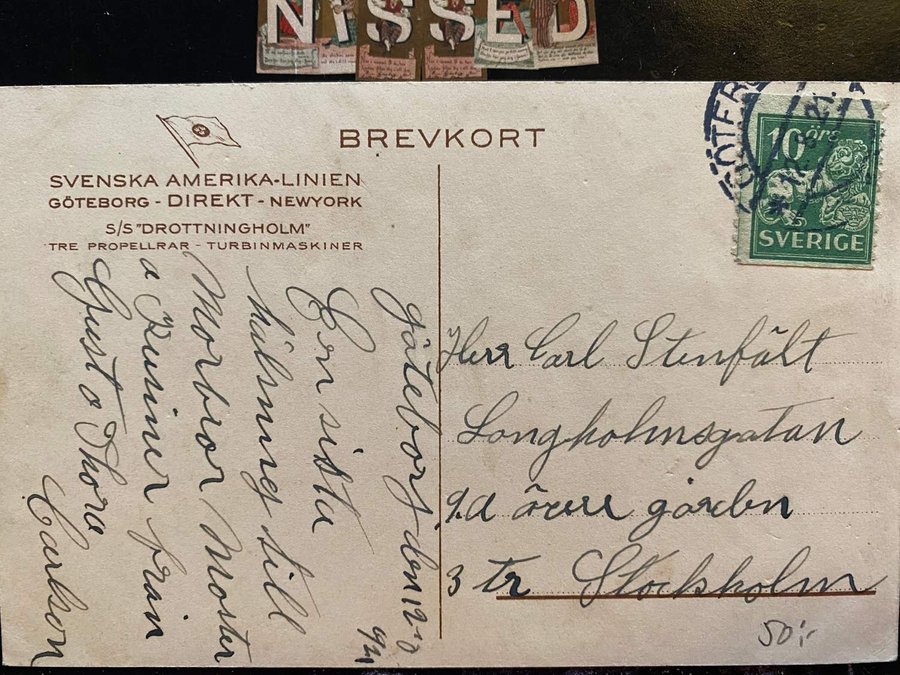 NISSED
BREVKORT
SVENSKA AMERIKA-LINIEN
GÖTEBORG - DIREKT - NEWYORK
S/S "DROTTNINGHOLM"
TRE PROPELLRAR - TURBINMASKINER
10 öre
SVERIGE
GÖTEB
Göteborg den
En sista
hälsning till
Morbror Moster
o Kusiner från
Gust o Thora
Carlson
Herr Carl Stenfält
Longholmsgatan
9.a övre gården
3 tr Stockholm
50:-